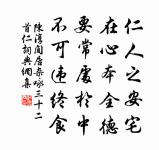 仁人之安宅
在心本全德
要常處於中
不可違終食
陳淳閒居雜咏三十二
首仁詞典網集